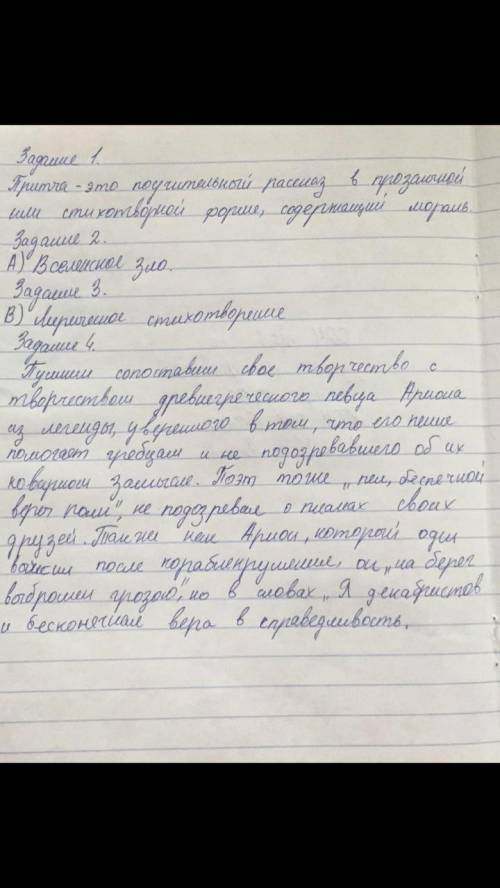 Задание 1.
Притча - это поучительный рассказ в прозаичной
или стихотворной форме, содержащий мораль.
Задание 2.
А) Вселенское зло.
Задание 3.
В) Лиричечное стихотворение
Задание 4.
Пушкин сопоставил свое творчество с
творчеством древнегреческого певца Ариона
из легенды, уверенного в том, что его пение
помогает гребцам и не подозревавшего об их
коварном замысле. Поэт тоже „пел, беспечной
веры полн", не подозревая о планах своих
друзей. Так же как Арион, который один
выжил после кораблекрушения, он „на берег
выброшен грозою", но в словах „Я декабристов
и бесконечная вера в справедливость.